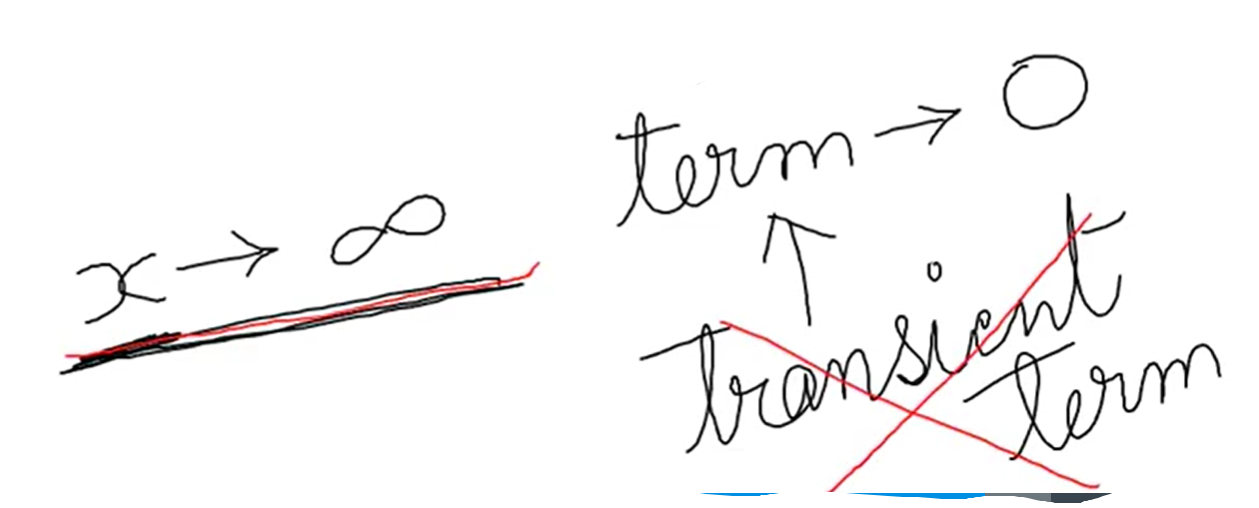 x → ∞
term → 0
transient
term